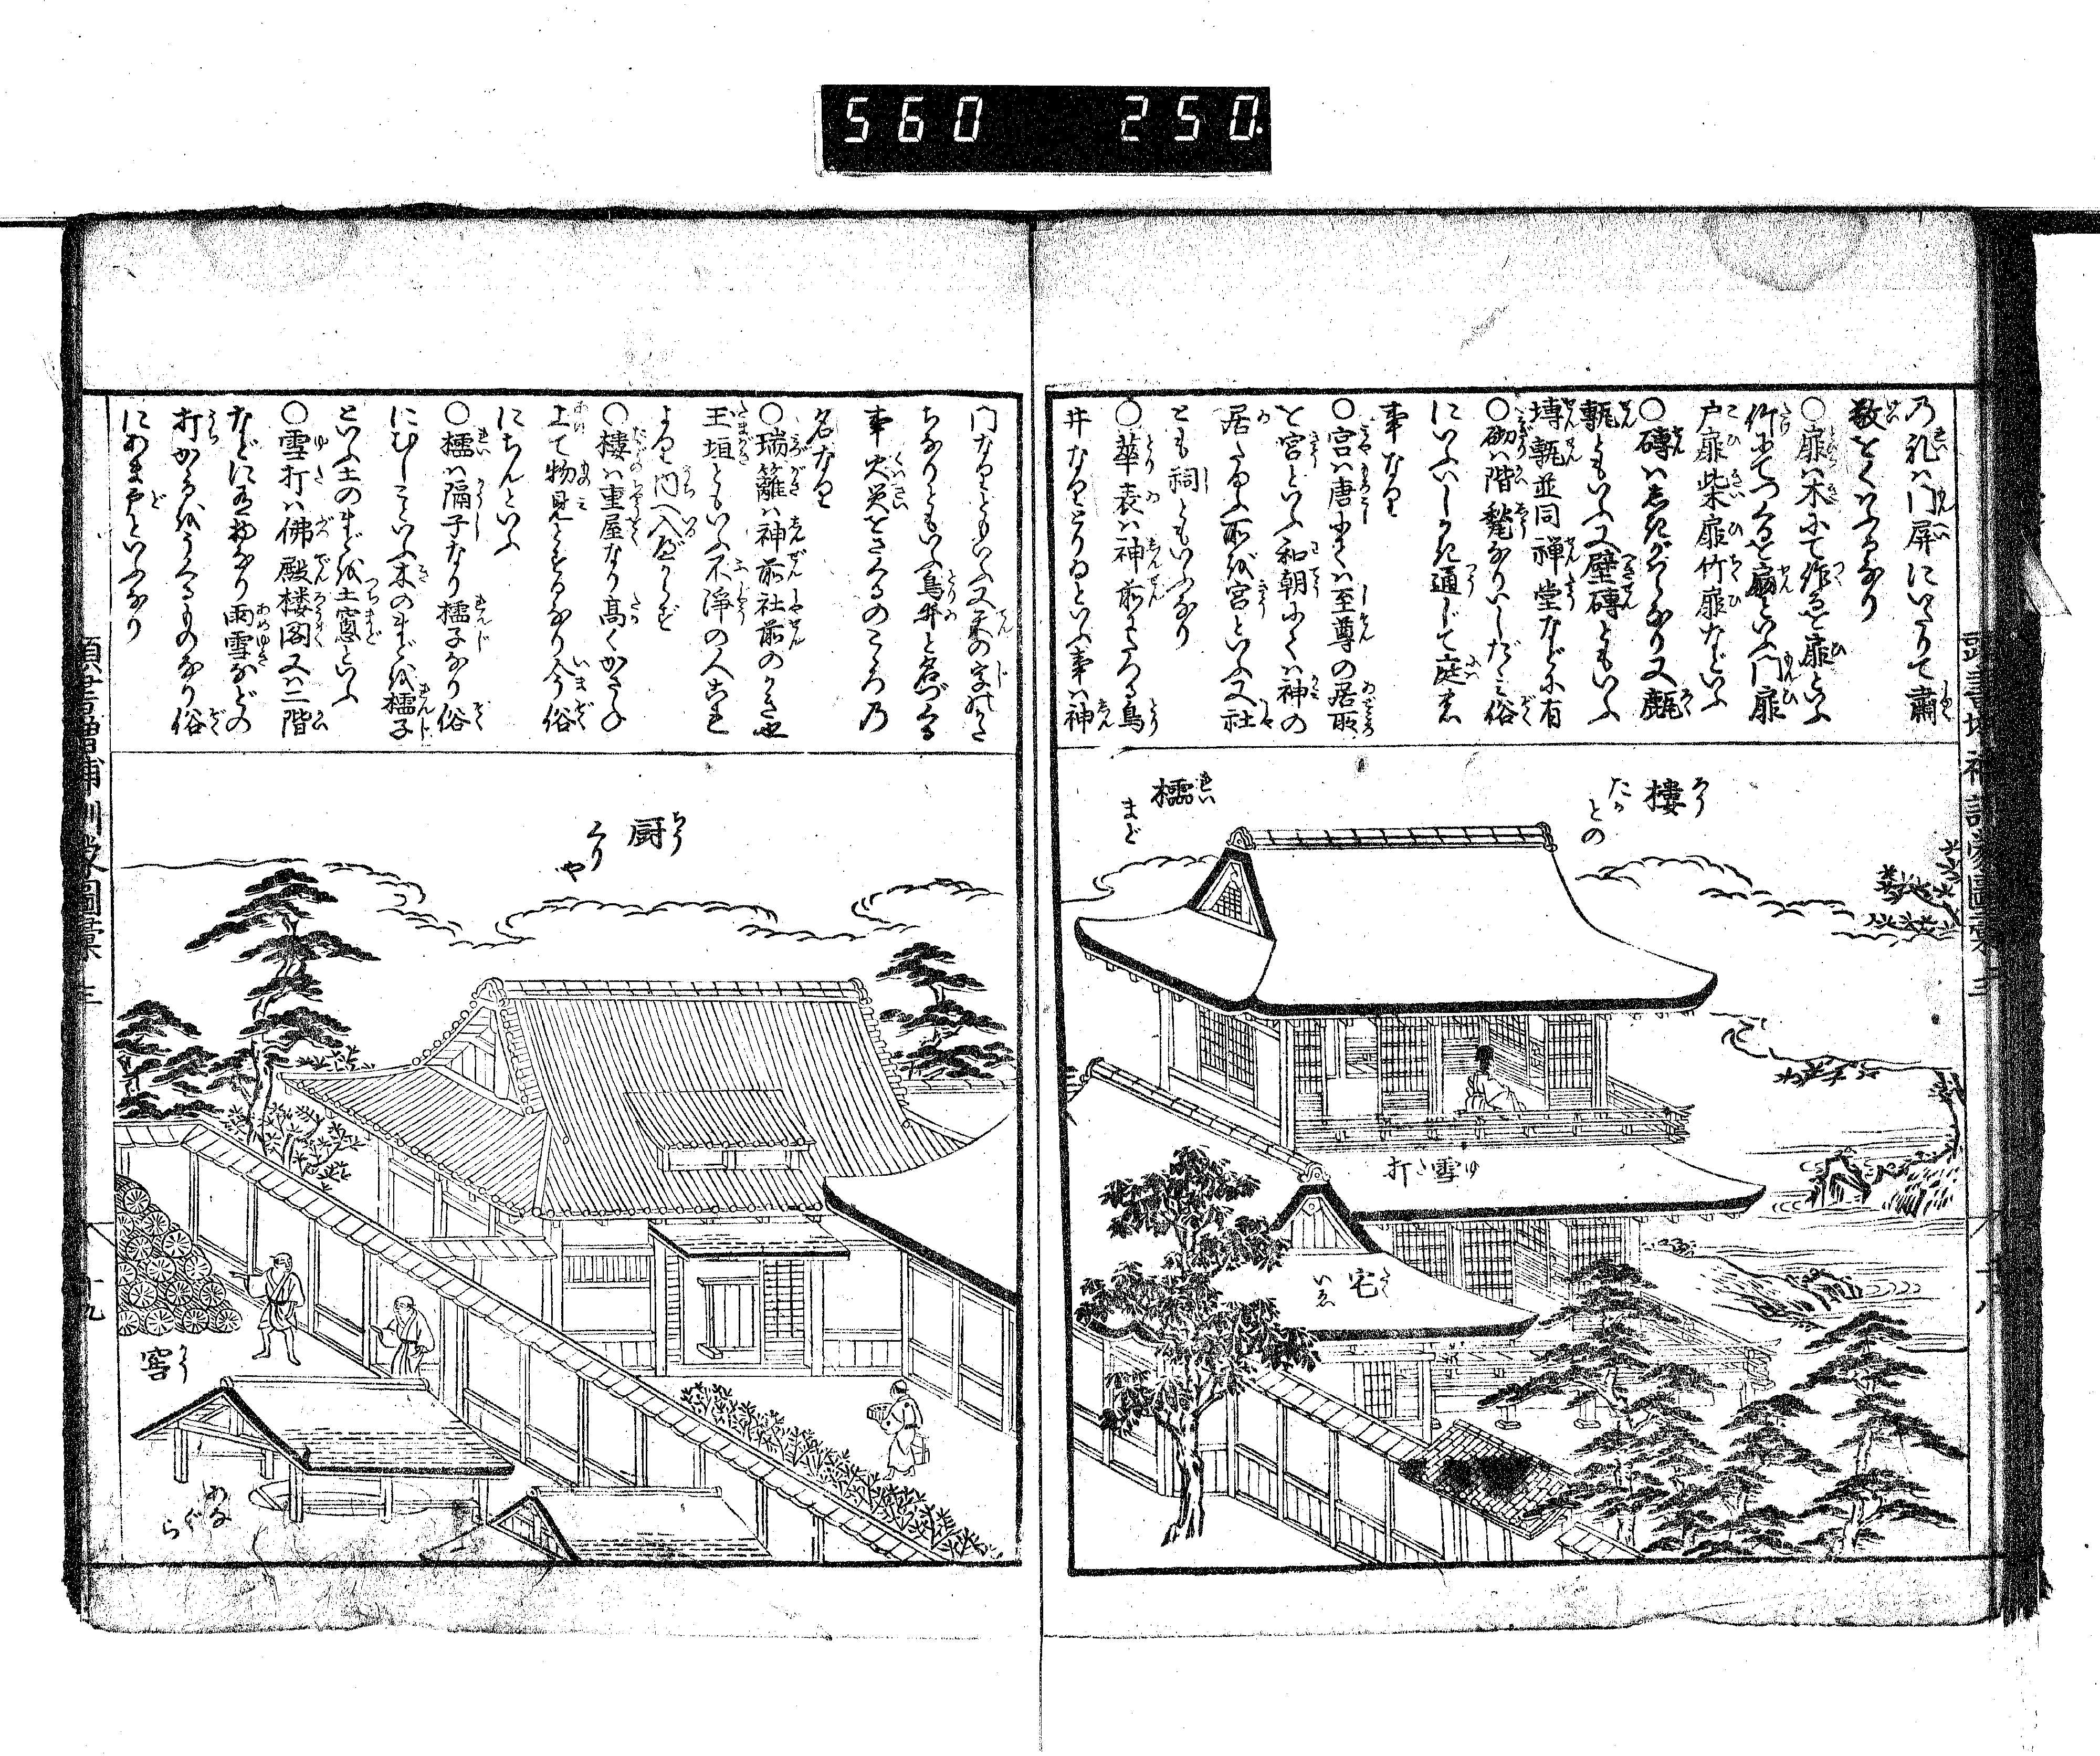 560 250
乃礼ハ門屏にいたりて粛
敬をくハふるなり
○扉ハ木にて作るを扉といふ
竹にてつくるを扇といふ門扉
戸扉柴扉竹扉などいふ
○磚ハしきがハらなり又甎
甎ともいふ又壁磚ともいふ
塼甎並同禅堂などに有
○砌ハ階甃なりいしだゝミ俗
にいふいしかき通じて庭も
事なり
○宮ハ唐にてハ至尊の居所
を宮といふ和朝にてハ神の
居たまふ所を宮といふ又社
とも祠ともいふなり
○華表ハ神前にたつる鳥
井なりとりゐといふ事ハ神
門なりともいふ又天の字のかた
ちなりともいふ鳥井と名づくる
事火災をさくるのこゝろ乃
名なり
○瑞籬ハ神前社前のかき也
玉垣ともいふ不浄の人これ
より内へ入べからず
○樓ハ重屋なり高くかさね
上て物見とするなり今俗
にちんといふ
○櫺ハ隔子なり櫺子なり俗
にむしこといふ木のまどを櫺子
といふ土のまどを土窓といふ
○雪打ハ佛殿楼閣又ハ二階
などに有物なり雨雪などの
打かるをうくるものなり俗
にあまどといふなり
樓 ろう たかどの
櫺 れい まど
雪打 ゆた
宅 たく いゑ
厨 ちう くりや
窖 かう あなぐら
頭書増補訓蒙圖彙 三
十八
頭書増補訓蒙圖彙 三
十九